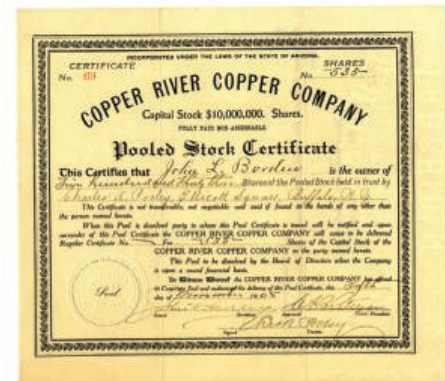 INCORPORATED UNDER THE LAWS OF THE STATE OF ARIZONA.
CERTIFICATE SHARES
No. 69 No. 535
COPPER RIVER COPPER COMPANY
Capital Stock $10,000,000. Shares.
FULLY PAID NON-ASSESSABLE
Pooled Stock Certificate
This Certifies that John L. Borden is the owner of
Five hundred and Thirty five Shares of the Pooled Stock held in trust by
Charles A. Square, Buffalo N.Y.
This Certificate is not transferable, not negotiable and void if found in the hands of any other than
the person named herein.
When this Pool is dissolved the party to whom this Pool Certificate is issued will be notified and upon
surrender of this Pool Certificate the COPPER RIVER COPPER COMPANY will cause to be delivered
Regular Certificate No. For 535 Shares of the Capital Stock of the
COPPER RIVER COPPER COMPANY to the party named herein.
This Pool to be dissolved by the Board of Directors when the Company
is upon a sound financial basis.
In Witness Whereof the COPPER RIVER COPPER COMPANY has affixed
its Corporate Seal and authorized the delivery of this Pool Certificate, this
day of November 190
Seal
Secretary President
Signed Trustee